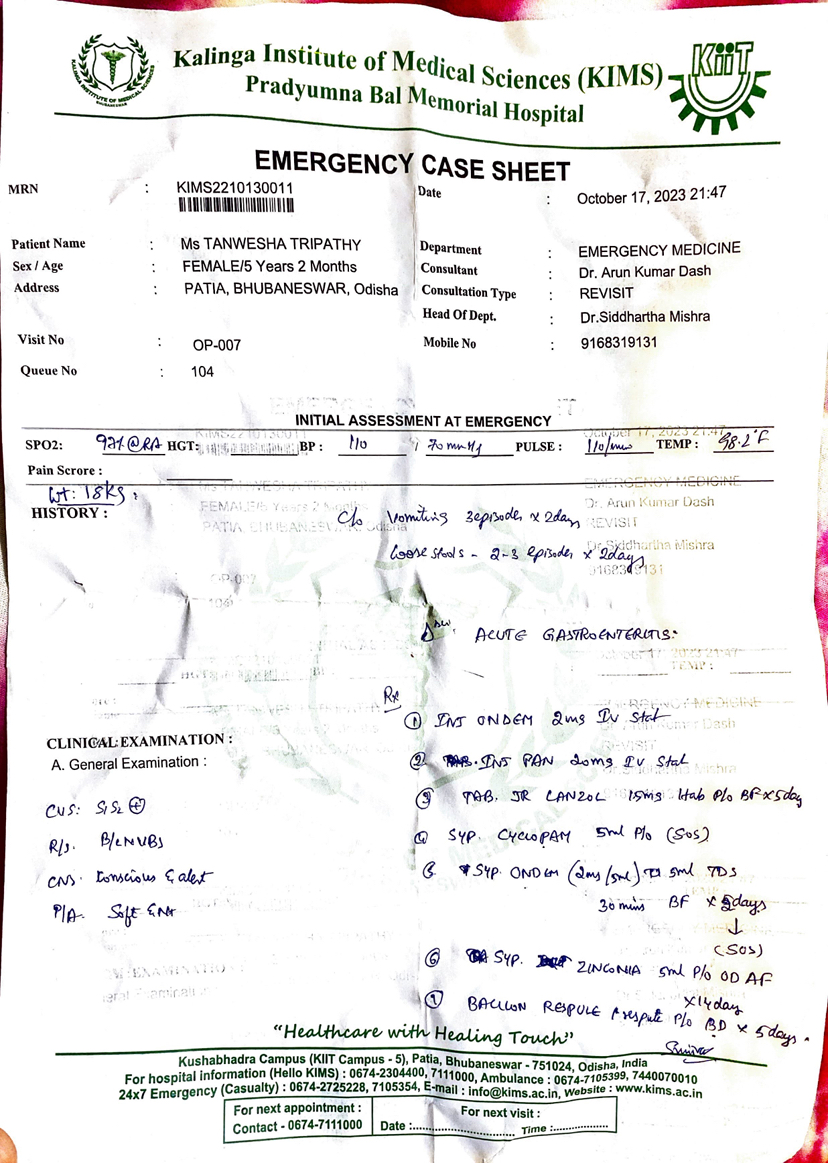 Kalinga Institute of Medical Sciences (KIMS)
Pradyumna Bal Memorial Hospital
KALINGA INSTITUTE OF MEDICAL SCIENCES
BHUBANESWAR
KiiT
EMERGENCY CASE SHEET
MRN : KIMS2210130011
Date : October 17, 2023 21:47
Patient Name : Ms TANWESHA TRIPATHY
Department : EMERGENCY MEDICINE
Sex / Age : FEMALE/5 Years 2 Months
Consultant : Dr. Arun Kumar Dash
Address : PATIA, BHUBANESWAR, Odisha
Consultation Type : REVISIT
Head Of Dept. : Dr.Siddhartha Mishra
Visit No : OP-007
Mobile No : 9168319131
Queue No : 104
INITIAL ASSESSMENT AT EMERGENCY
SPO2: 97% @RA HGT: BP : 110 / 70 mmHg PULSE : 110/min TEMP : 98.2°F
Pain Scrore :
Wt: 18Kg.
HISTORY :
c/o Vomiting 3episodes x 2days
Loose stools - 2-3 episodes x 2days
ACUTE GASTROENTERITIS.
Rx
① INJ ONDEM 2mg IV Stat
② INJ PAN 20mg IV Stat
③ TAB. JR LANZOL 15mg 1tab P/o BF x 5day
④ SYP. CYCLOPAM 5ml P/o (SOS)
5. SYP. ONDEM (2mg/5ml) 5ml TDS
30 mins BF x 2days
↓
(SOS)
⑥ SYP. ZINCONIA 5ml P/o OD AF
x 14day
⑦ BACILON RESPULE 1 respule P/o BD x 5days.
CLINICAL EXAMINATION :
A. General Examination :
CVS: S1S2 ⊕
R/s. B/L NVBS
CNS. Conscious & alert
P/A. Soft & NT
"Healthcare with Healing Touch"
Kushabhadra Campus (KIIT Campus - 5), Patia, Bhubaneswar - 751024, Odisha, India
For hospital information (Hello KIMS) : 0674-2304400, 7111000, Ambulance : 0674-7105399, 7440070010
24x7 Emergency (Casualty) : 0674-2725228, 7105354, E-mail : info@kims.ac.in, Website : www.kims.ac.in
For next appointment :
Contact - 0674-7111000
For next visit :
Date :.............................. Time :..................